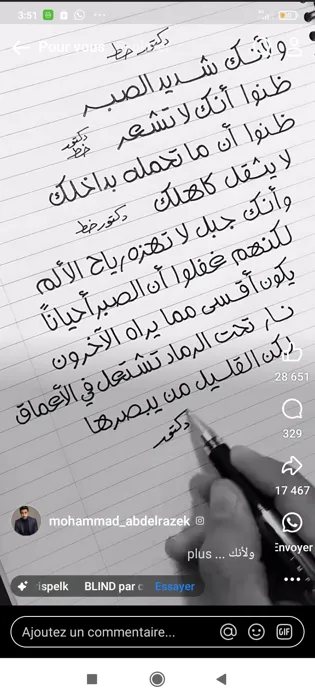 3:51
Pour vous
دكتور خط
ولأنك شديد الصبر
ظنوا أنك لا تشعر
دكتور خط
ظنوا أن ما تحمله بداخلك
لا يثقل كاهلك
دكتور خط
وأنك جبل لا تهزه رياح الألم
لكنهم غفلوا أن الصبر أحياناً
يكون أقسى مما يراه الآخرون
نار تحت الرماد تشتعل في الأعماق
لكن القليل من يبصرها
دكتور
28 651
329
17 467
Envoyer
mohammad_abdelrazek
ولأنك ... plus
ispelk BLIND par c Essayer
Ajoutez un commentaire...
GIF